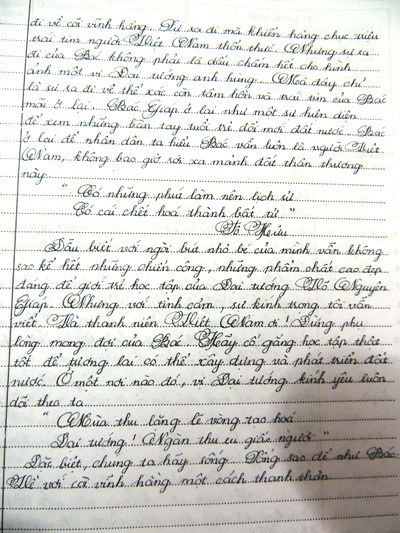 đi về cõi vĩnh hằng. Sự ra đi mà khiến hàng chục triệu
trái tim người Việt Nam thổn thức. Nhưng sự ra
đi của Bác không phải là dấu chấm hết cho hình
ảnh một vị Đại tướng anh hùng. Mà đây chỉ
là sự ra đi về thể xác còn tâm hồn và trái tim của Bác
mãi ở lại. Bác Giáp ở lại như một sự hiện diện
để xem những bàn tay tuổi trẻ đổi mới đất nước. Bác
ở lại để nhân dân ta hiểu Bác vẫn luôn là người Việt
Nam, không bao giờ rời xa mảnh đất thân thương
này.
" Có những phút làm nên lịch sử
Có cái chết hoá thành bất tử "
Tố Hữu
Dẫu biết với ngòi bút nhỏ bé của mình vẫn không
sao kể hết những chiến công, những phẩm chất cao đẹp
đáng để giới trẻ học tập của Đại tướng Võ Nguyên
Giáp. Nhưng với tình cảm, sự kính trọng tôi vẫn
viết. Hà thanh niên Việt Nam ơi! Đừng phụ
lòng mong đợi của Bác. Hãy cố gắng học tập thật
tốt để tương lai có thể xây dựng và phát triển đất
nước. Ở một nơi nào đó, vị Đại tướng kính yêu luôn
dõi theo ta.
" Mùa thu lặng lẽ vòng tạo hoá
Đại tướng! Ngàn thu cu giấc người "
Đặc biệt, chúng ta hãy sống sao để như Bác
Về với cõi vĩnh hằng một cách thanh thản